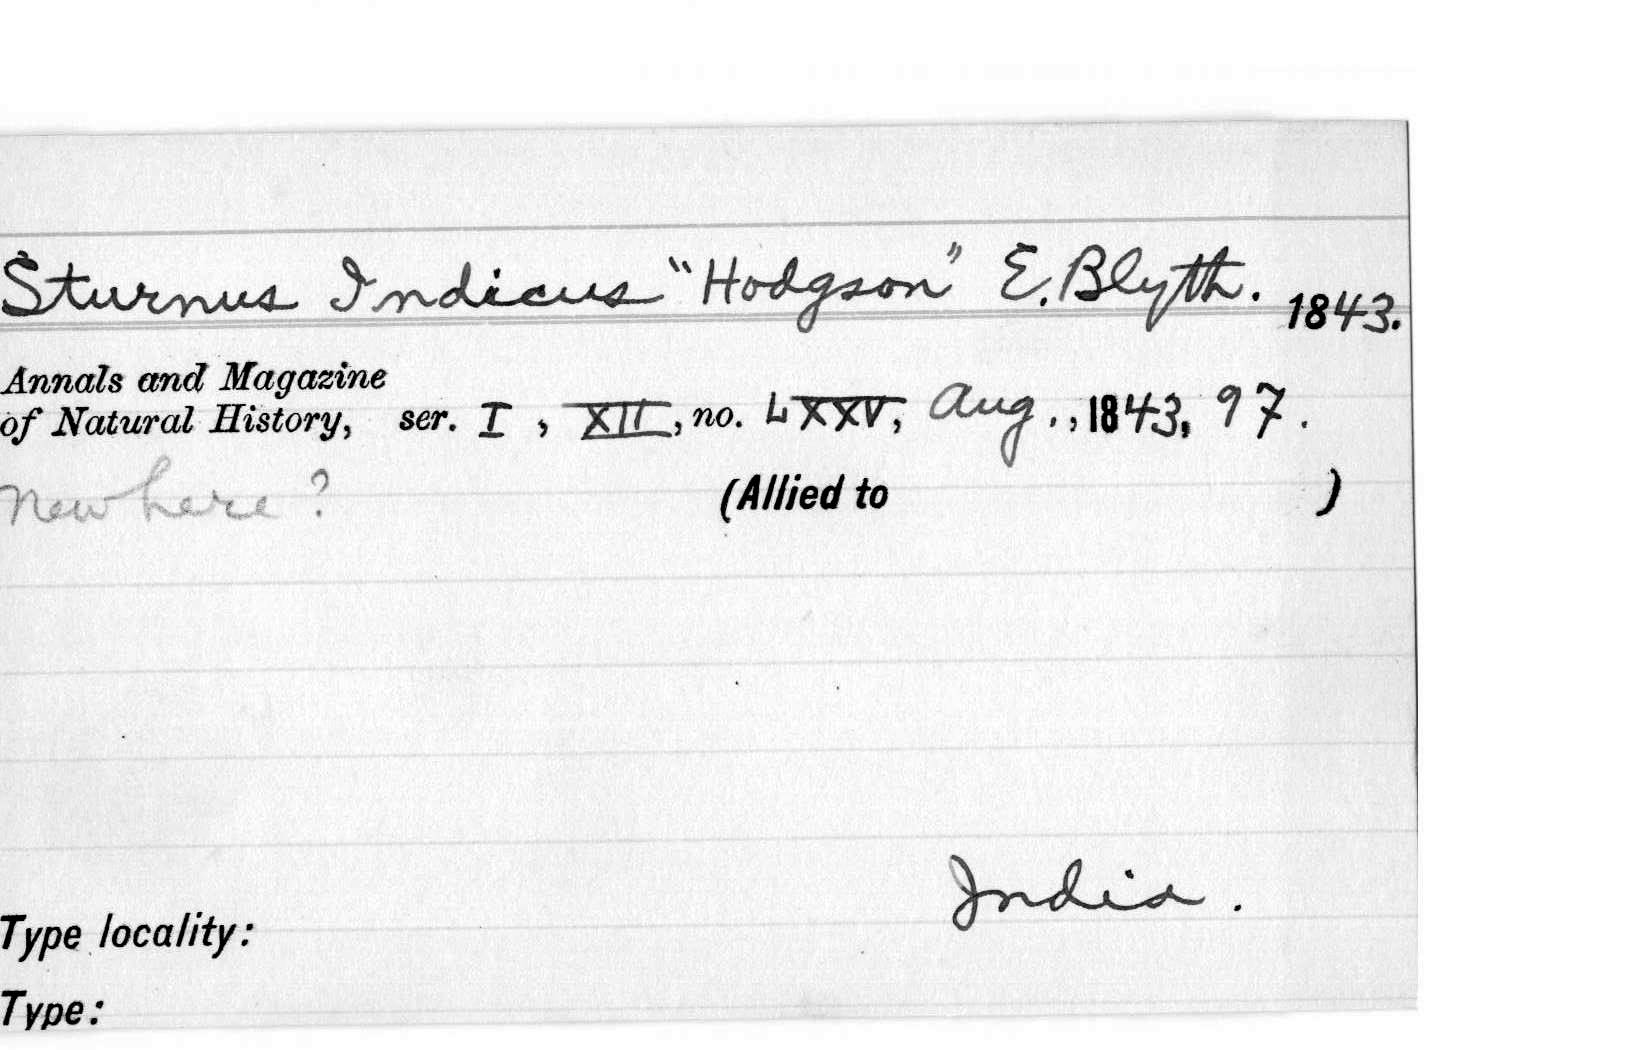 Sturnus Indicus "Hodgson" E. Blyth. 1843.
Annals and Magazine
of Natural History, ser. I, XII, no. LXXV, Aug., 1843, 97.
New here? (Allied to )
India.
Type locality:
Type: